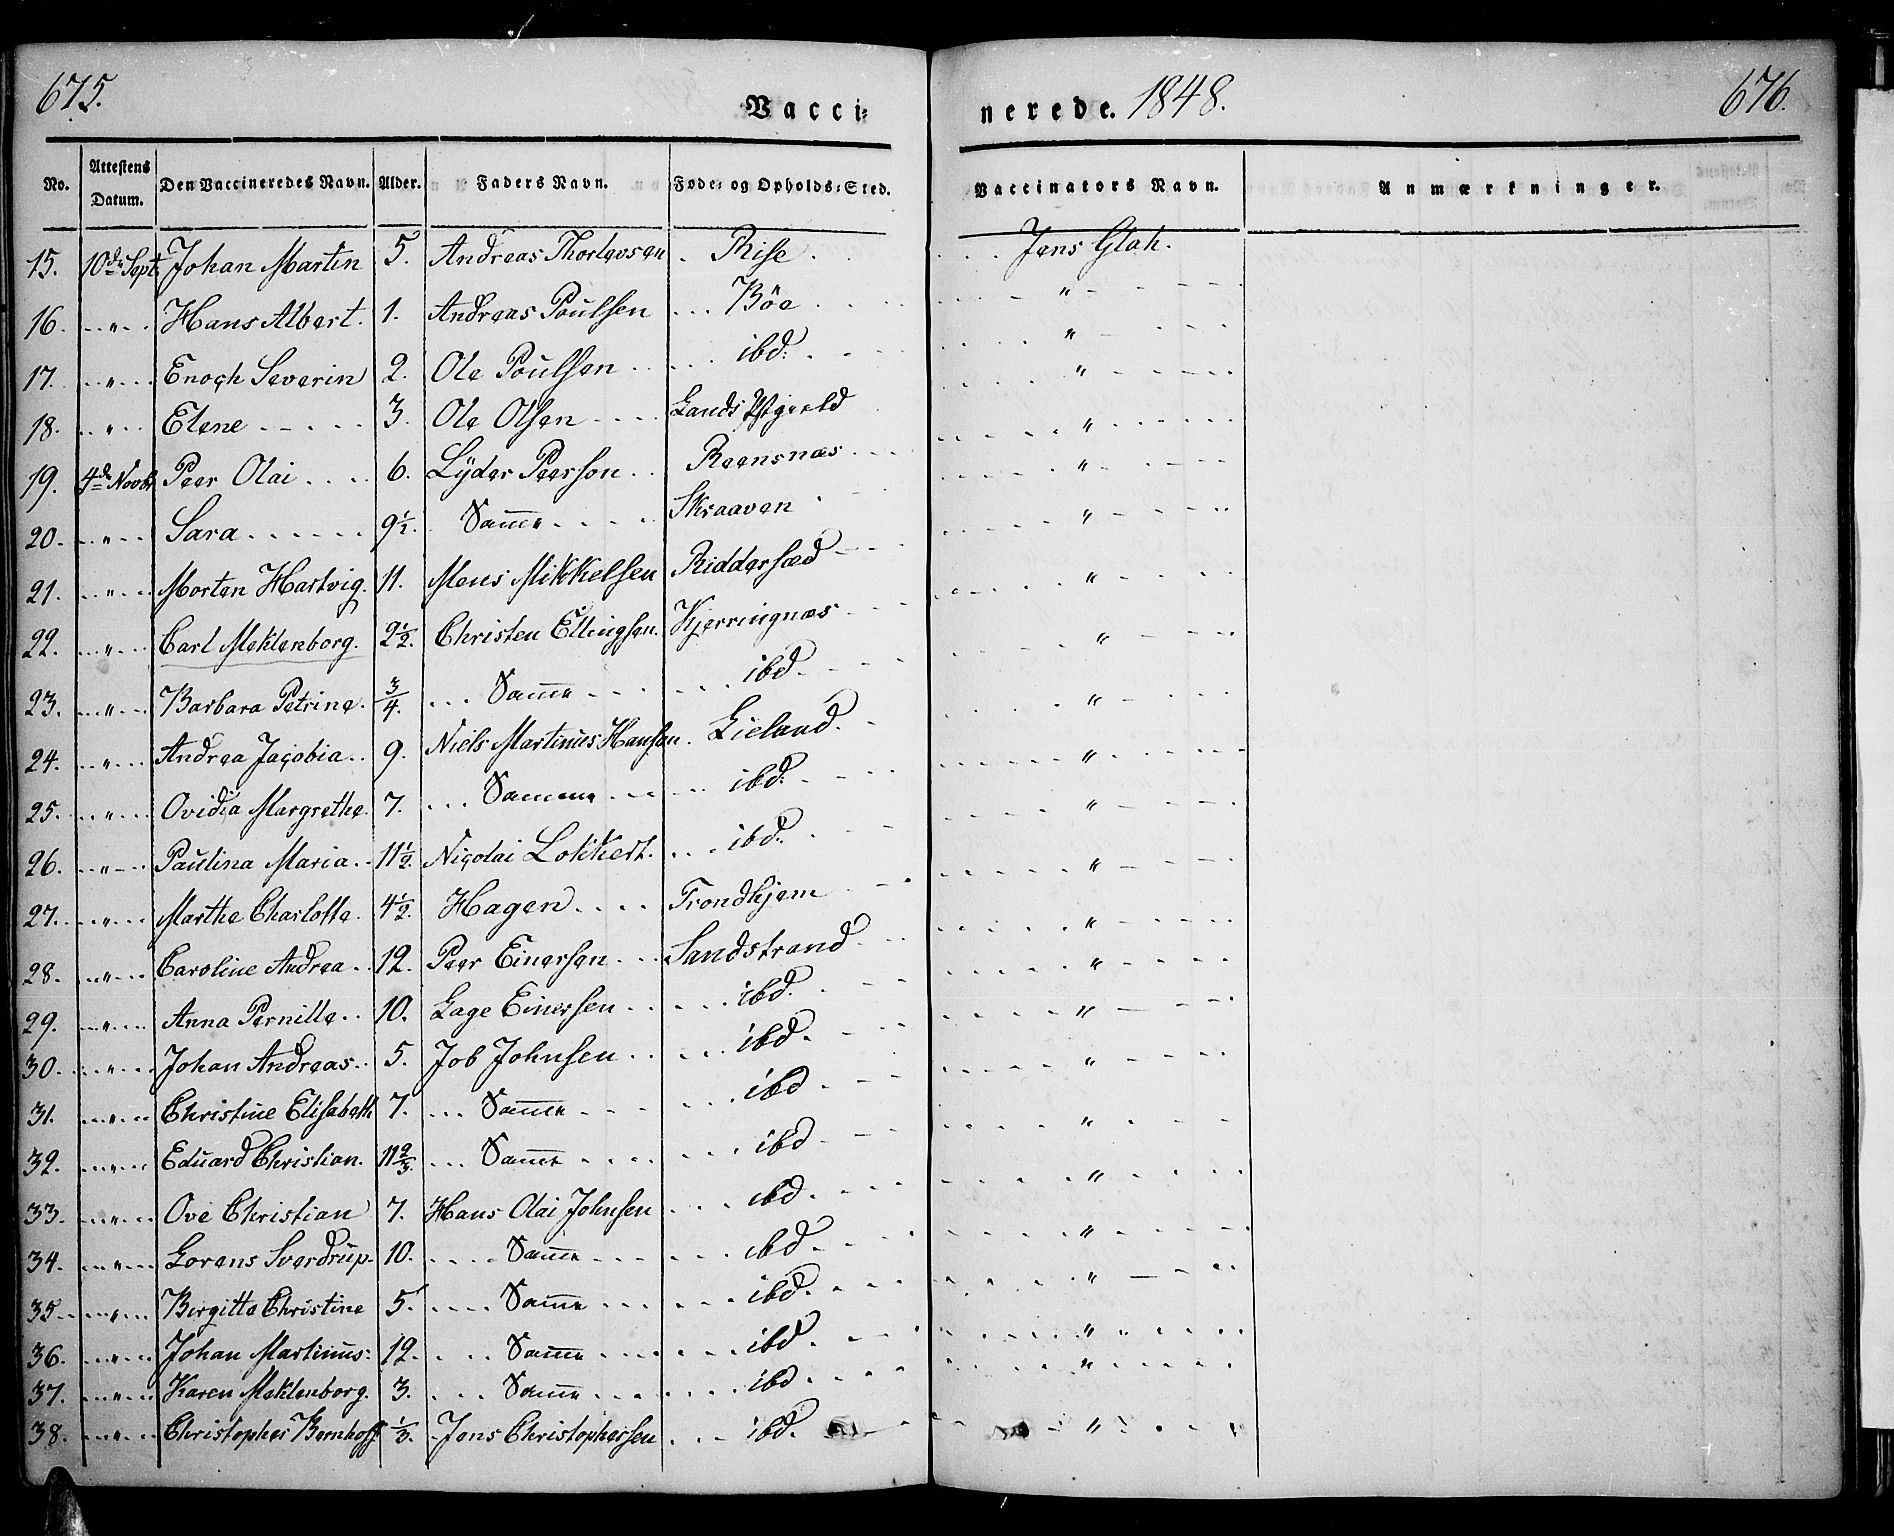 675.
Vacci-
nerede. 1848.
676.
No. Attestens Datum. Den Vaccineredes Navn. Alder. Faders Navn. Føde- og Opholds-Sted. Vaccinators Navn. Anmærkninger.
15. 10de Sept. Johan Martin 5. Andreas Thorlevsen Rise Jens Glah.
16. " Hans Albert. 1. Andreas Poulsen Böe "
17. " Enoch Severin 2. Ole Poulsen ibd: "
18. " Elene 3. Ole Olsen Lands Pstgjeld "
19. 4de Novbr Peer Olai 6. Lyder Peerson Reensnæs "
20. " Sara 9½. Samme Skraaven "
21. " Morten Hartvig. 11. Mons Mikkelsen Ridderfæd "
22. " Carl Meklenborg. 2½. Christen Ellingsen. Kjerringnæs "
23. " Barbara Petrine. ¾. Samme ibd. "
24. " Andrea Jacobia 9. Niels Martinus Hansen. Lieland. "
25. " Ovidia Margrethe. 7. Samme ibd. "
26. " Paulina Maria 11½. Nicolai Lokkert. ibd. "
27. " Marthe Charlotte. 4½. Hagen Trondhjem "
28. " Caroline Andrea 12. Peer Einersen Sandstrand "
29. " Anna Pernille 10. Lage Einersen ibd. "
30. " Johan Andreas 5. Job Johnsen ibd. "
31. " Christine Elisabeth 7. Samme ibd "
32. " Eduard Christian. 11⅔. Samme ibd "
33. " Ove Christian 7. Hans Olai Johnsen ibd. "
34. " Lorens Sverdrup 10. Samme ibd. "
35 " Birgitte Christine 5. Samme ibd. "
36. " Johan Martinus: 12. Samme ibd. "
37. " Karen Meklenborg. 3. Samme ibd "
38. " Christopher Bernhoff ⅓. Jens Christophersen ibd. "